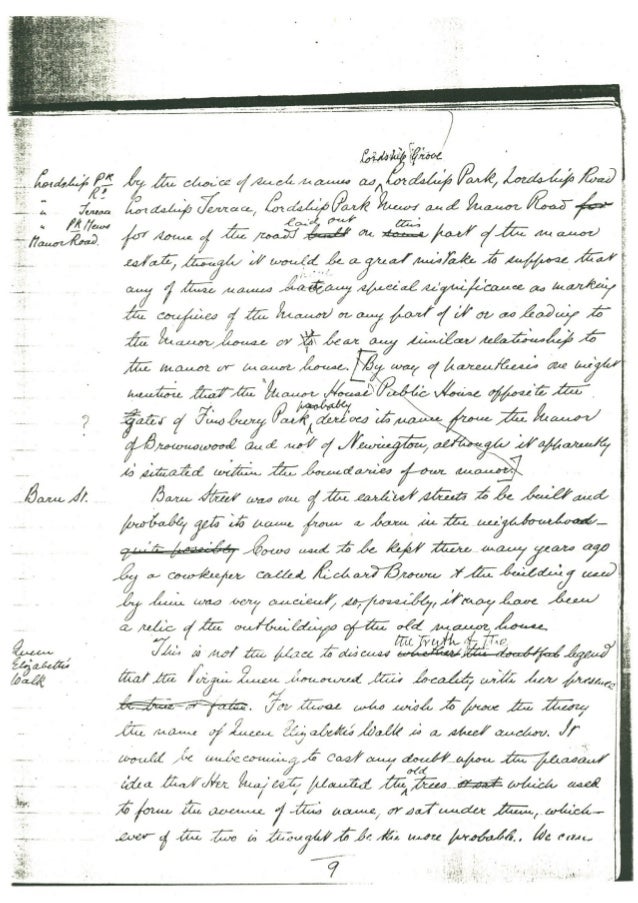 Lordship Grove
Lordship Pk by the choice of such names as Lordship Park, Lordship Road
" Rd
" Terrace Lordship Terrace, Lordship Park Mews and Manor Road for
" Pk Mews for some of the roads built laid out on some this part of the manor
Manor Road. estate, though it would be a great mistake to suppose that
any of these names any special significance as marking
the confines of the Manor or any part of it or as leading to
the Manor house or to bear any similar relationship to
the manor or manor house. [By way of parenthesis one might
mention that the "Manor House" Public House opposite the
? gates of Finsbury Park, probably derives its name from the Manor
of Brownswood and not of Newington, although it apparently
is situated within the boundaries of our manor.]
Barn St. Barn Street was one of the earliest streets to be built and
probably gets its name from a barn in the neighbourhood
quite possibly Cows used to be kept there many years ago
by a cowkeeper called Richard Brown & the building used
by him was very ancient, so, possibly, it may have been
a relic of the outbuildings of the old manor house.
Queen This is not the place to discuss whether the doubtful the truth of the legend
Elizabeth's
Walk that the Virgin Queen honoured this locality with her presence
be true or false. For those who wish to prove the theory
the name of Queen Elizabeth's Walk is a sheet anchor. It
would be unbecoming to cast any doubt upon the pleasant
idea that Her Majesty planted the old trees or sat which used
to form the avenue of this name, or sat under them, which-
ever of the two is thought to be the more probable. We can
9